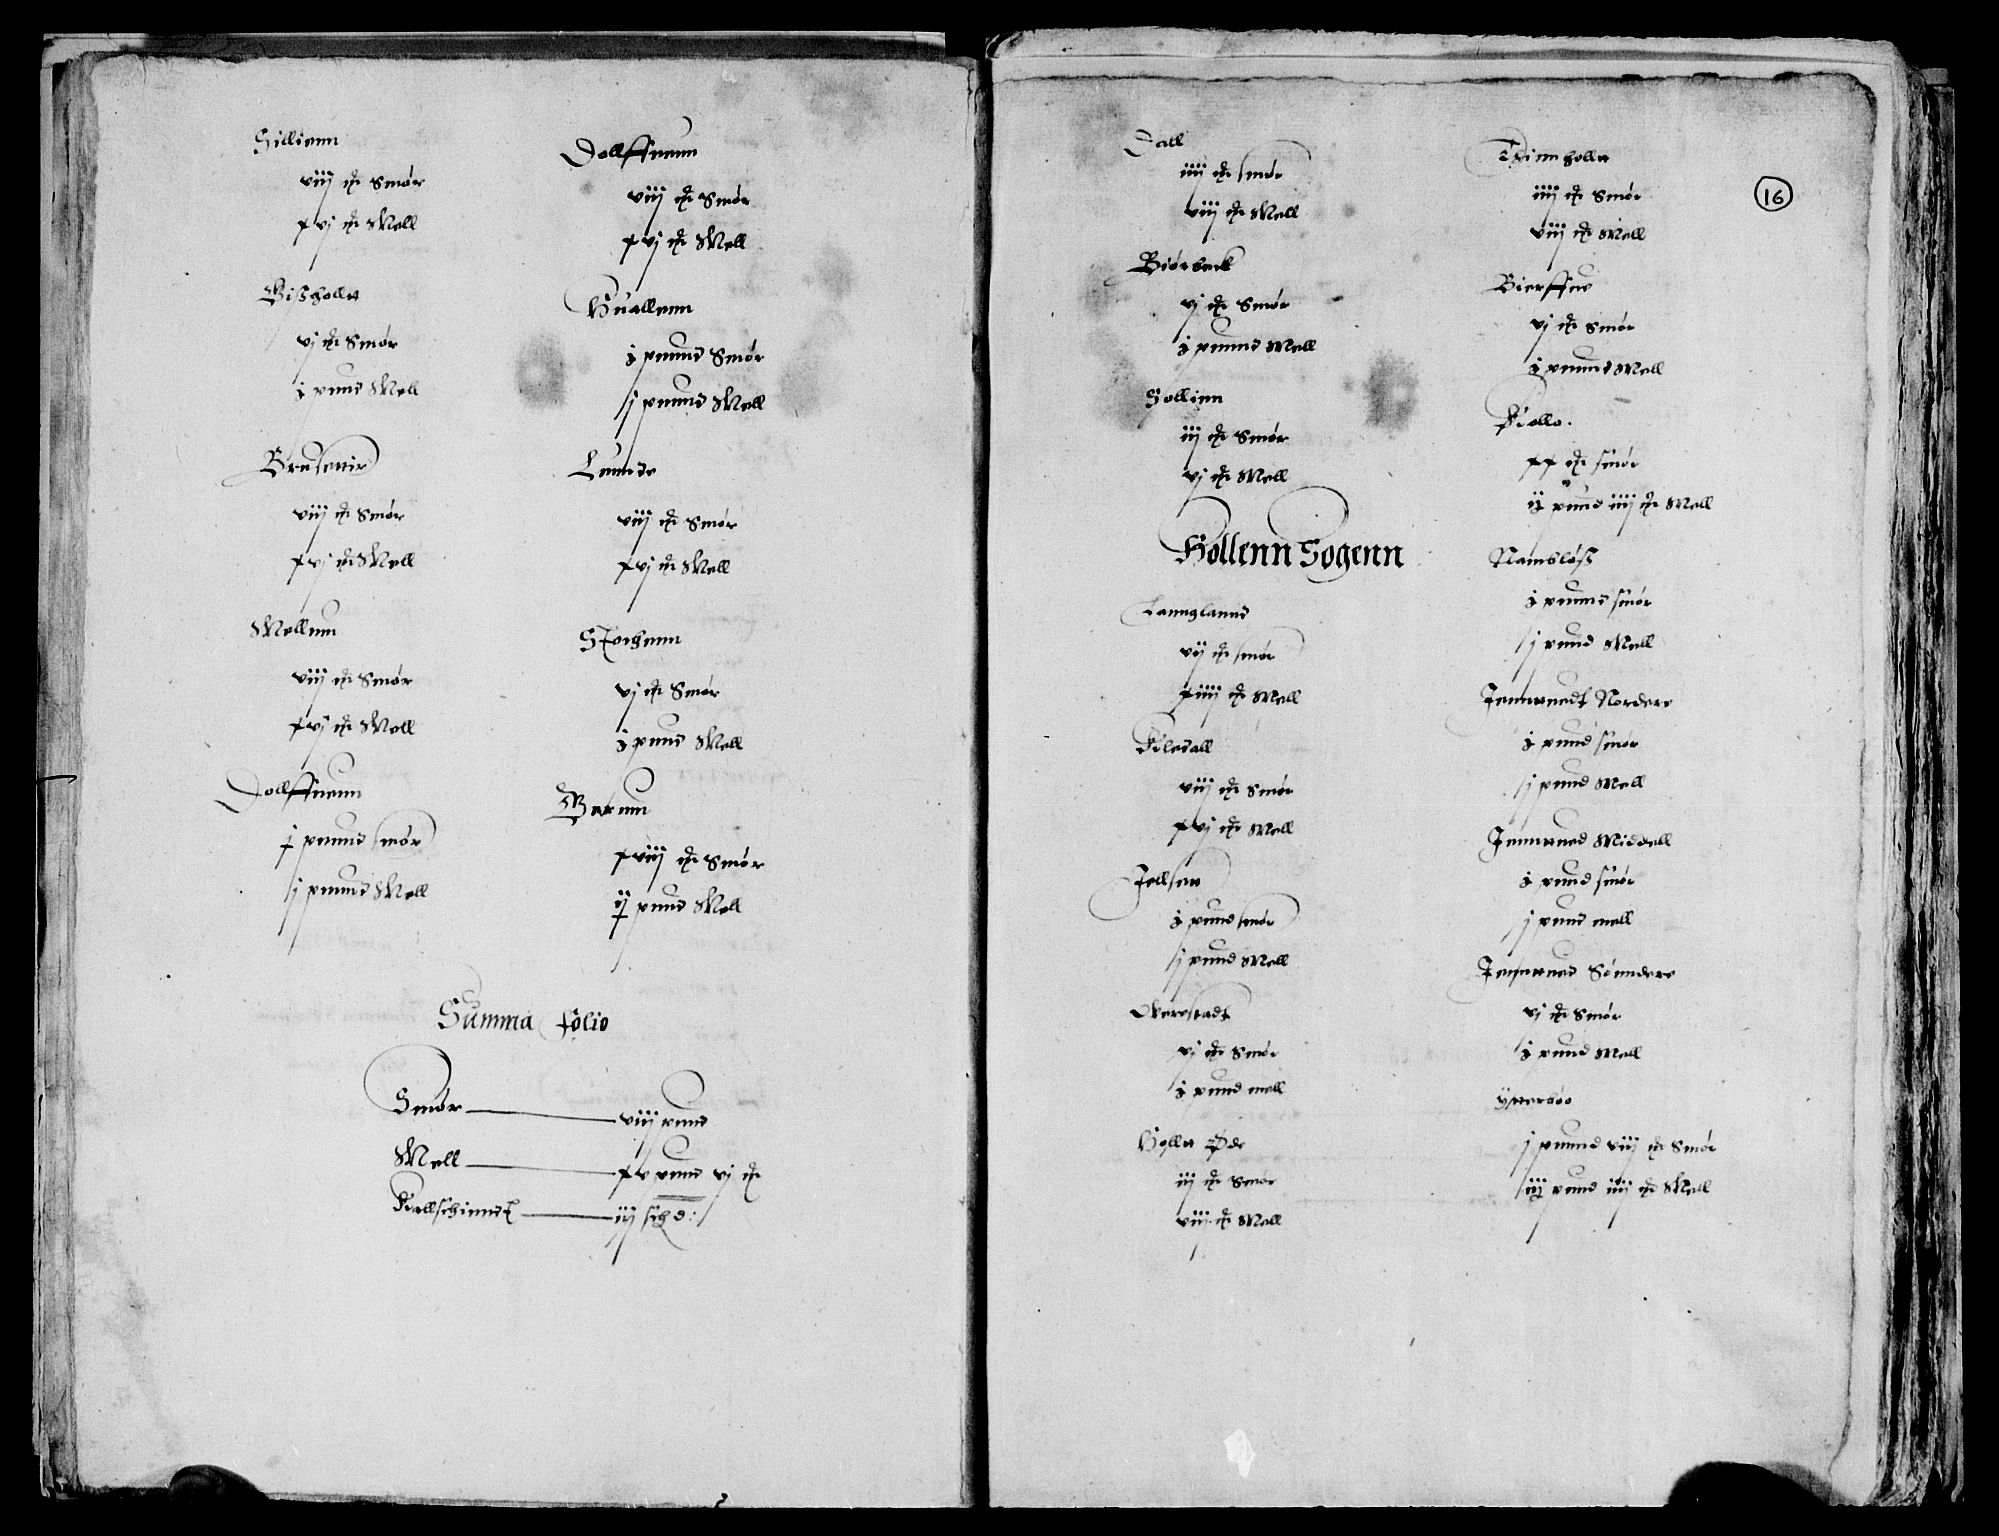 Sillienn
viij m̄ Smør
xvj m̄ Mell
Bißholtt
vj m̄ Smør
j pund Mell
Brusenir
viij m̄ Smør
xvj m̄ Mell
Mellum
viij m̄ Smør
xvj m̄ Mell
Dollffuenn
j pnund smør
ij pnund Mell
Dollffuenn
viij m̄ Smør
xvj m̄ Mell
Huallenn
j pnund Smør
ij pnund Mell
Lunde
viij m̄ Smør
xvj m̄ Mell
Storhenn
vj m̄ Smør
j pund Mell
Berum
xviij m̄ Smør
ij pund Mell
Summa folio
Smør — viij pund
Mell — xv pund vj m̄
Kallschinndt — iij
16
Dall
iiij m̄ smør
viij m̄ Mell
Biørbeck
vj m̄ Smør
j pnund Mell
Sollien
iij m̄ Smør
vj m̄ Mell
Hollenn Sogenn
Lannglannd
vij m̄ smør
xiiij m̄ Mell
Kiledall
viij m̄ Smør
xvj m̄ Mell
Jellsett
j pund smør
ij pund Mell
Offuerstadt
vj m̄ Smør
j pund mell
Holtt Øde
iiij m̄ Smør
viij m̄ Mell
Trimholtt
iiij m̄ Smør
viij m̄ Mell
Bierffue
vj m̄ Smør
j pnund Mell
xx m̄ smør
ij pund iiij m̄ Mell
Nambløß
j pnund smør
ij pund Mell
Jennuedt Nordere
j pund smør
ij pund Mell
Jennued Middell
j pund smør
ij pund mell
Jennued Sønndere
vj m̄ Smør
j pund Mell
Ytterbøo
j pnund viij m̄ Smør
iij pund iiij m̄ Mell